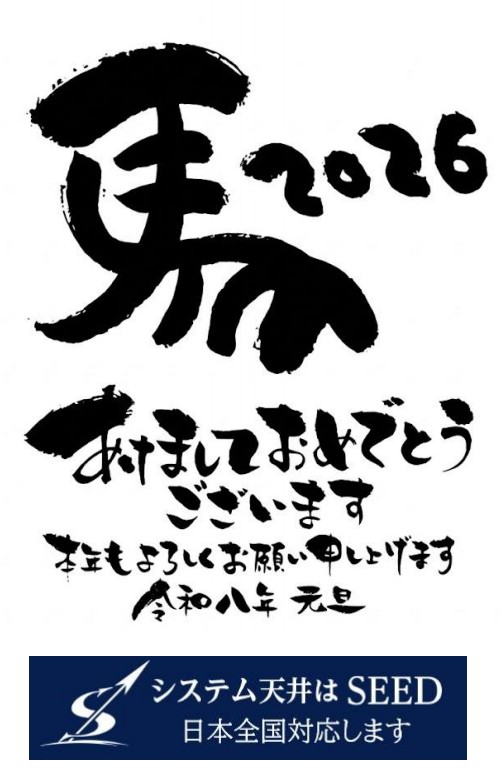 馬2026
あけましておめでとう
ございます
本年もよろしくお願い申し上げます
令和八年 元旦
システム天井は SEED
日本全国対応します